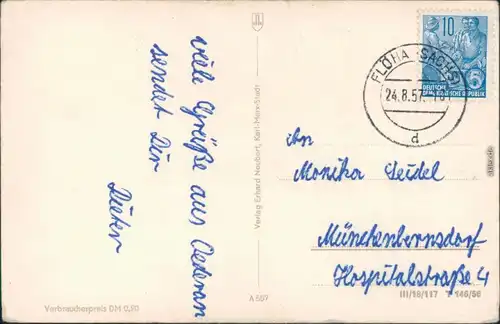 viele Grüße aus Oederan
sendet Dir
Dieter
Verbraucherpreis DM 0,20
A 557
Verlag Erhard Neubert, Karl-Marx-Stadt
10
DEUTSCHE
DEMOKRATISCHE REPUBLIK
5
FLÖHA (SACHS)
24.8.57
d
An
Monika Seidel
Münchenbernsdorf
Hospitalstraße 4
III/18/117 T 146/56